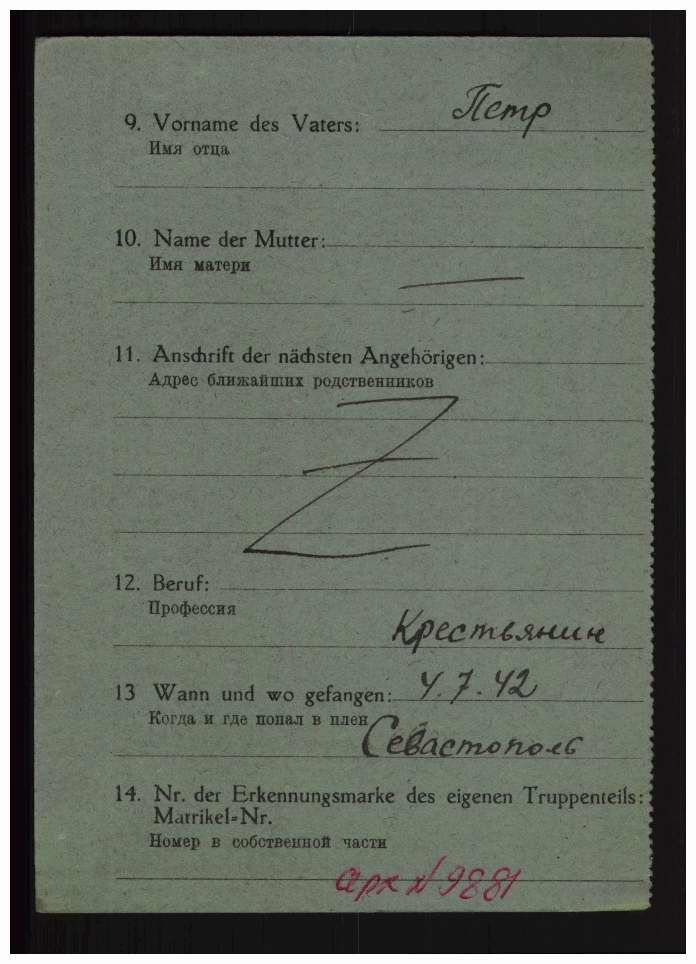 9. Vorname des Vaters: Петр
Имя отца
10. Name der Mutter: —
Имя матери
11. Anschrift der nächsten Angehörigen:
Адрес ближайших родственников
Z
12. Beruf:
Профессия
Крестьянин
13 Wann und wo gefangen: 4.7.42
Когда и где попал в плен Севастополь
14. Nr. der Erkennungsmarke des eigenen Truppenteils:
Matrikel=Nr.
Номер в собственной части
арк N 9881